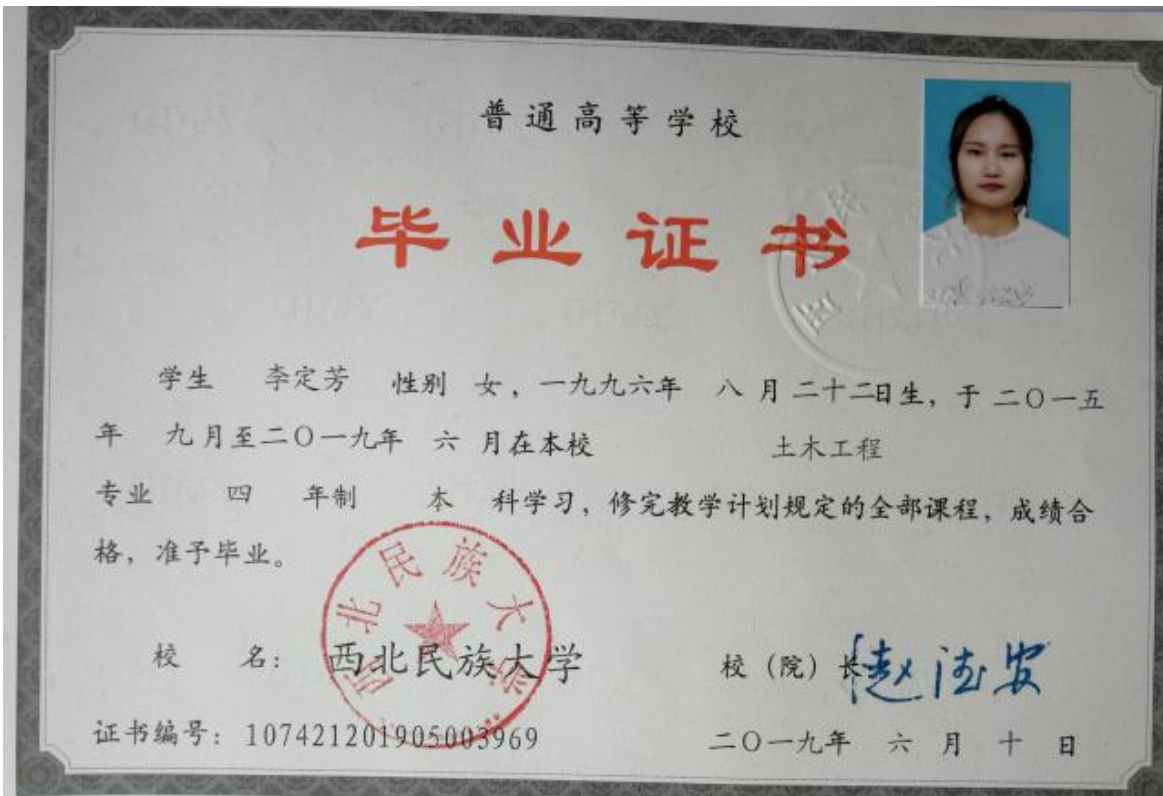 普通高等学校
毕业证书
学生 李定芳 性别 女，一九九六年 八 月 二十二日生，于 二〇一五
年 九月至二〇一九年 六 月在本校 土木工程
专业 四 年制 本 科学习，修完教学计划规定的全部课程，成绩合
格，准予毕业。
西北民族大学
校 名： 西北民族大学 校（院）长 赵德安
证书编号：107421201905003969 二〇一九年 六 月 十 日